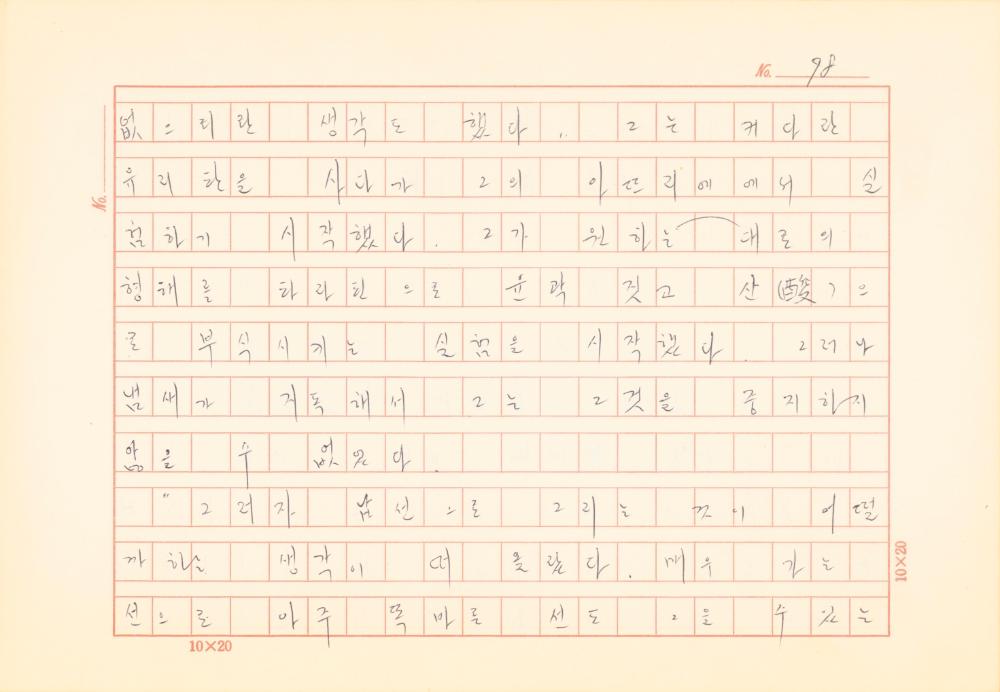 No. 98
없으리란 생각도 했다.. 그는 커다란
유리판을 사다가 그의 아뜨리에에서 실
험하기 시작했다. 그가 원하는 대로의
형해를 파라핀으로 윤곽 짓고 산(酸)으
로 부식시키는 실험을 시작했다. 그러나
냄새가 지독해서 그는 그것을 중지하지
않을 수 없었다.
"그러자 납선으로 그리는 것이 어떨
까 하는 생각이 떠 올랐다. 매우 가는
선으로 아주 똑바를 선도 그을 수 있는
No.
10×20
10×20